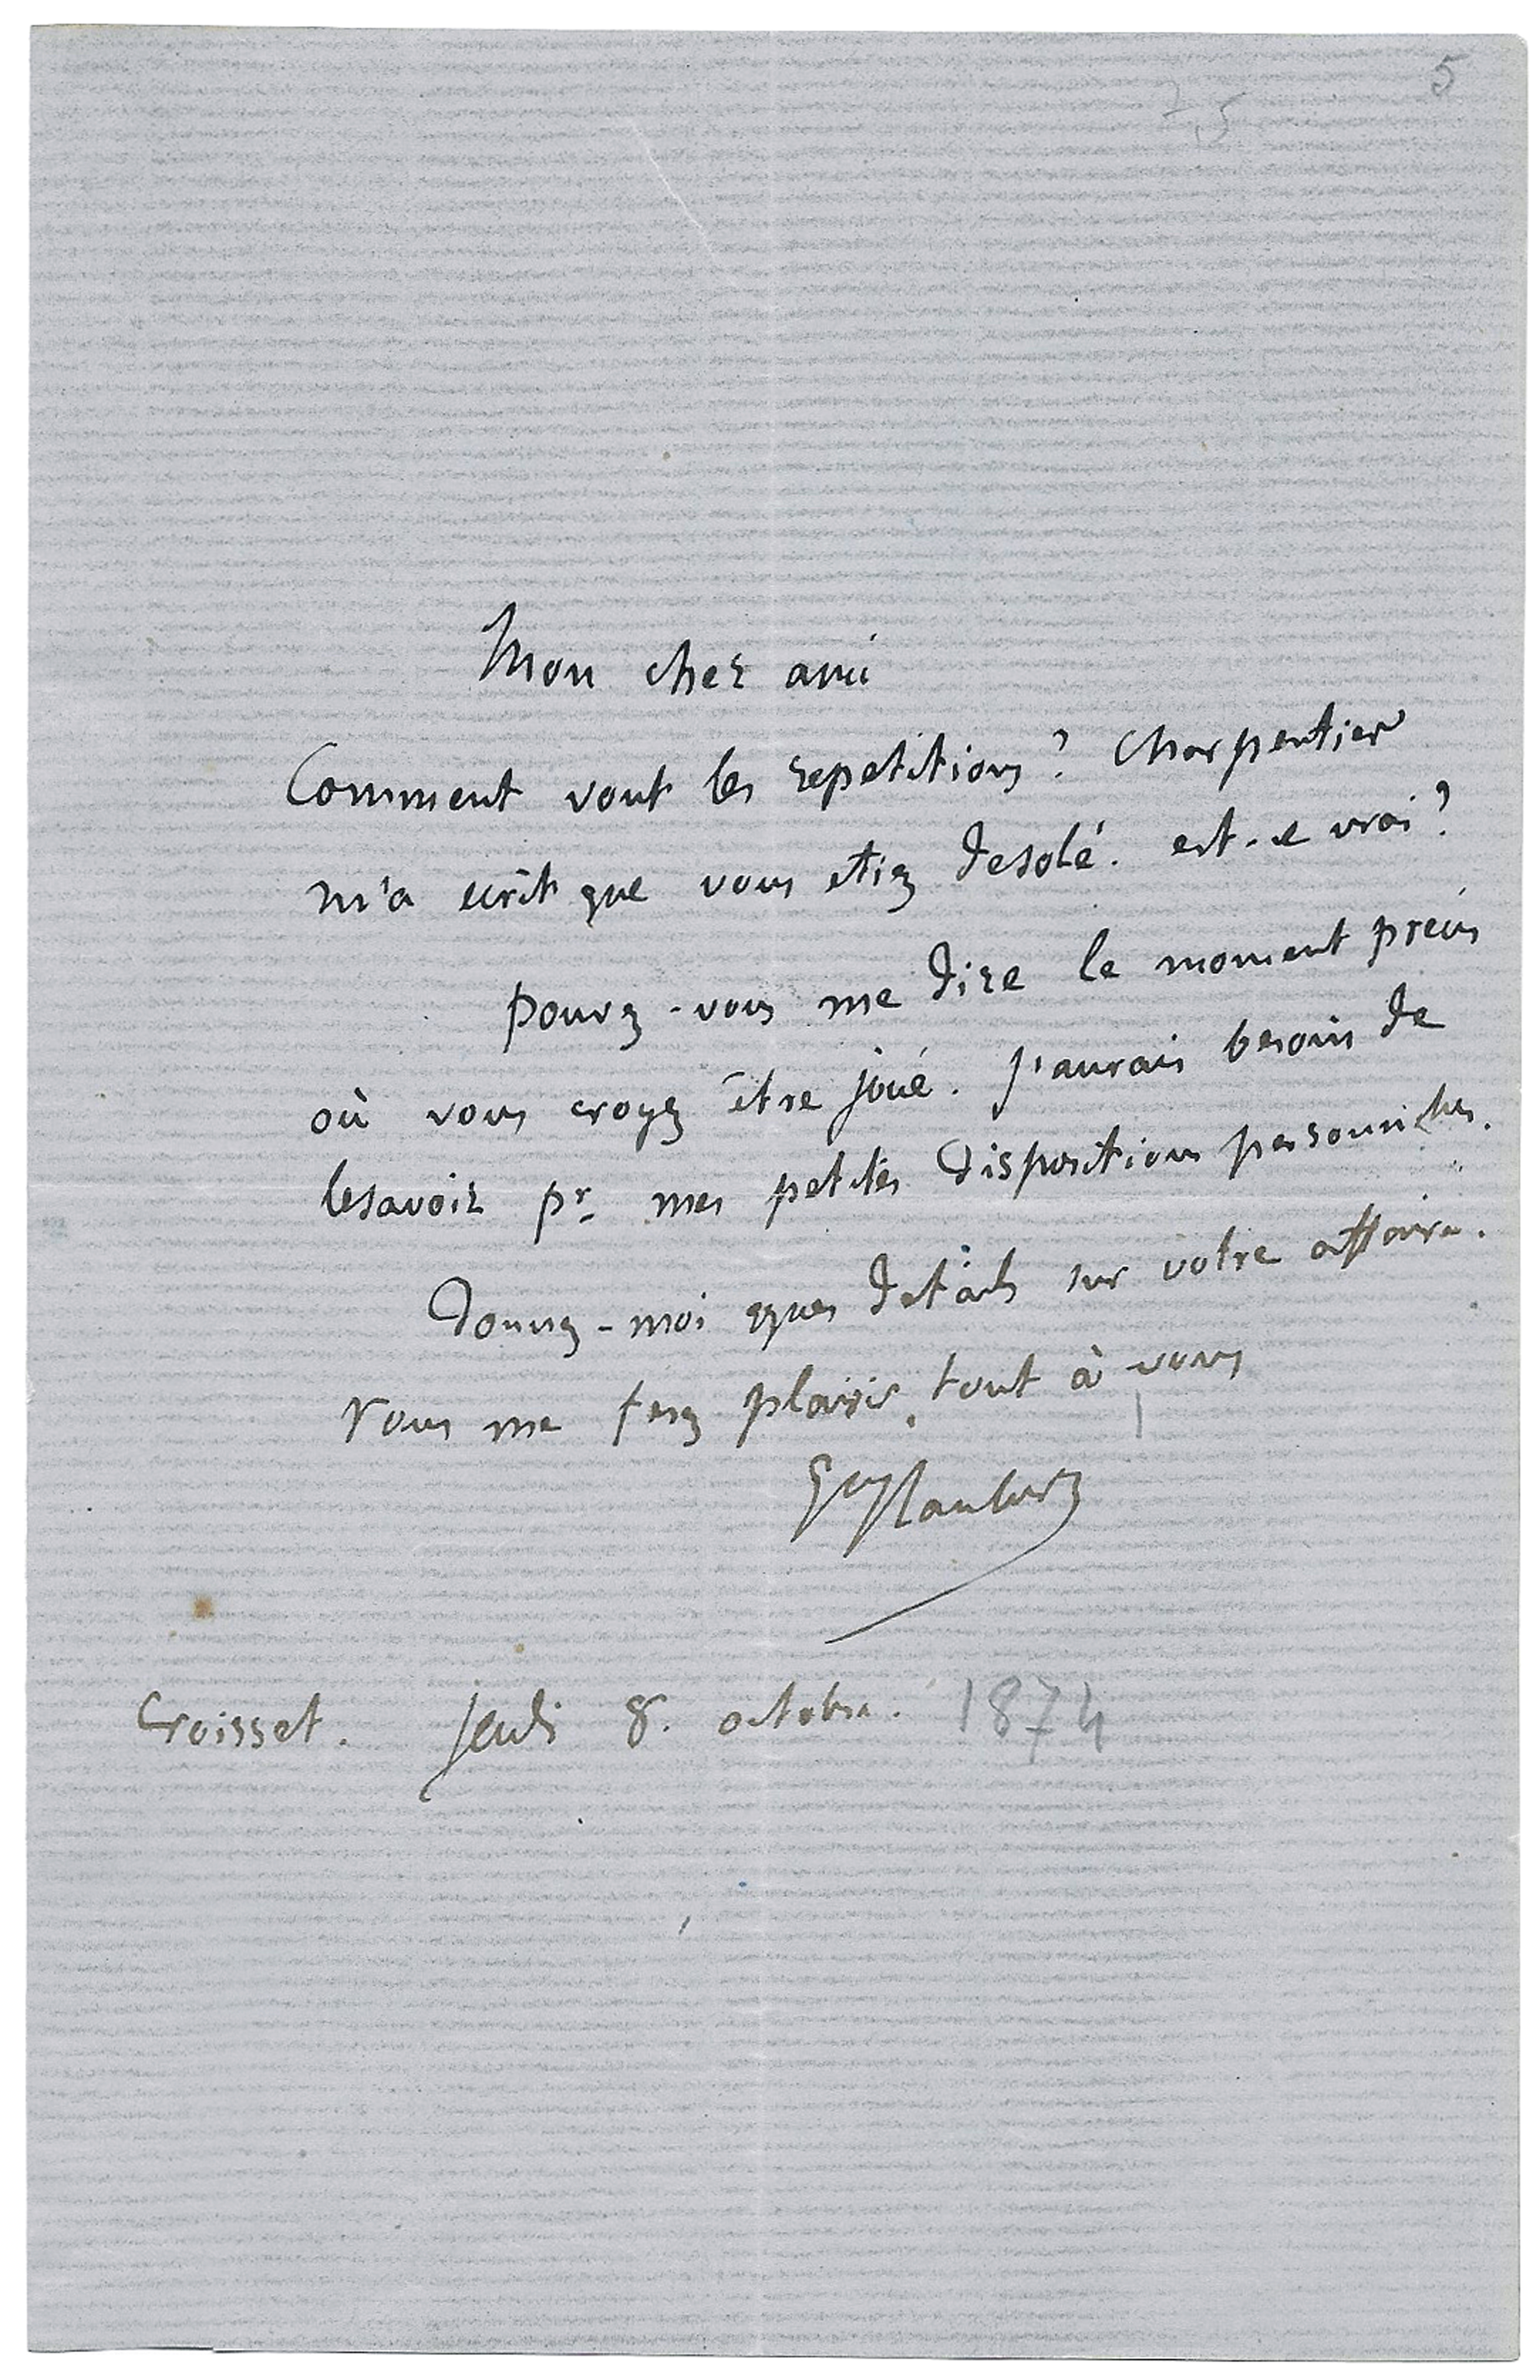 5
25
Mon cher ami
Comment vont les repetitions? Charpentier
m'a ecrit que vous etiez desolé. est-ce vrai?
pouvez-vous me dire le moment précis
où vous croyez être joué. J'aurais besoin de
le savoir pr. mes petites dispositions personnelles.
Donnez-moi qques details sur votre affaire.
Vous me ferez plaisir. tout à vous
Gve Flaubert
Croisset. Jeudi 8. octobre. 1874